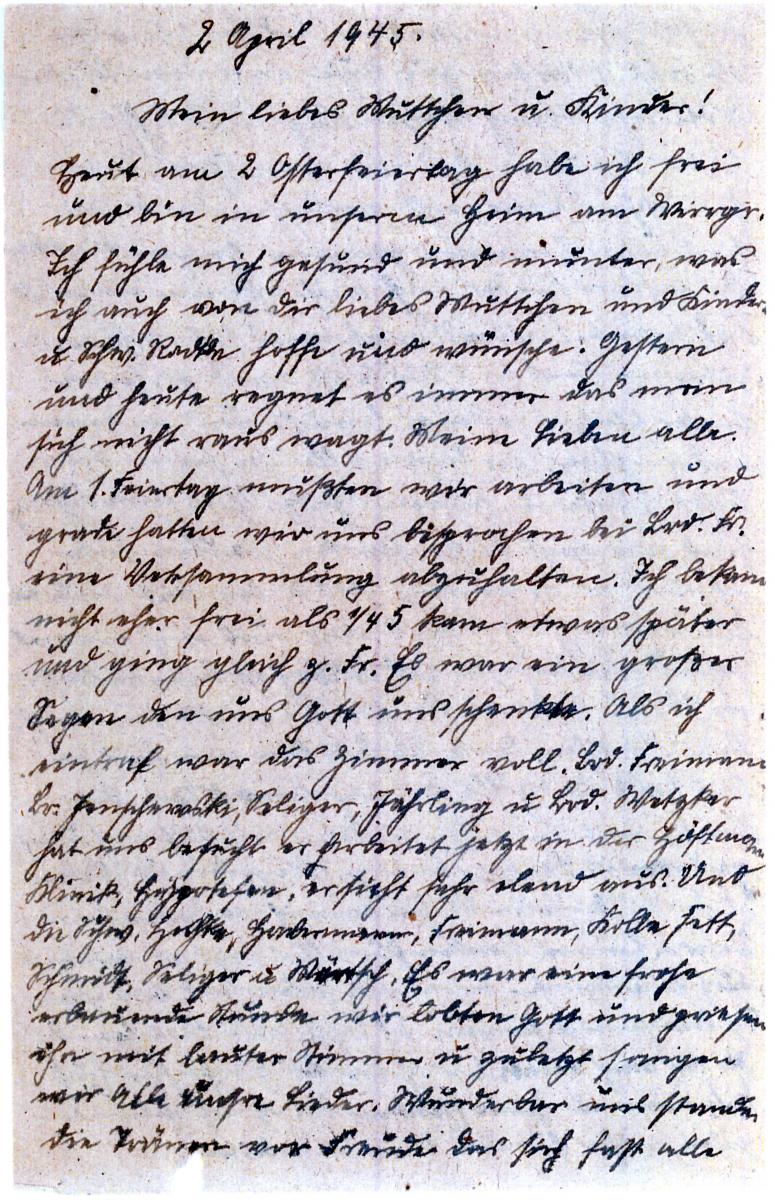 2 April 1945.
Mein liebes Muttchen u. Kinder!
Heut am 2 Osterfeiertag habe ich frei
und bin in unserm Heim am Wirrgr.
Ich fühle mich gesund und munter, was
ich auch von dir liebes Muttchen und Kinder
u Schw. Radtke hoffe und wünsche. Gestern
und heute regnet es immer das man
sich nicht raus wagt. Meine Lieben alle.
Am 1. Feiertag mußten wir arbeiten und
grade hatten wir uns besprochen bei Brd. Fr.
eine Versammlung abzuhalten. Ich bekam
nicht eher frei als 1/4 5 kam etwas später
und ging gleich z. Fr. Es war ein großer
Segen den uns Gott uns schenkte. Als ich
eintraf war das Zimmer voll. Brd. Freimann
Br. Jenschewski, Seliger, Jährling u Brd. Metzker
hat uns besucht er arbeitet jetzt in der
Klinik, er sieht sehr elend aus. Und
die Schw. Habermann, Freimann, Kolle Fett,
Schmidt, Seliger u Wärtsch. Es war eine frohe
erbauende Stunde wir lobten Gott und priesen
ihn mit lauter Stimme u zuletzt sangen
wir alle unsre Lieder. Wunderbar uns standen
die Tränen vor Freude das sich fast alle